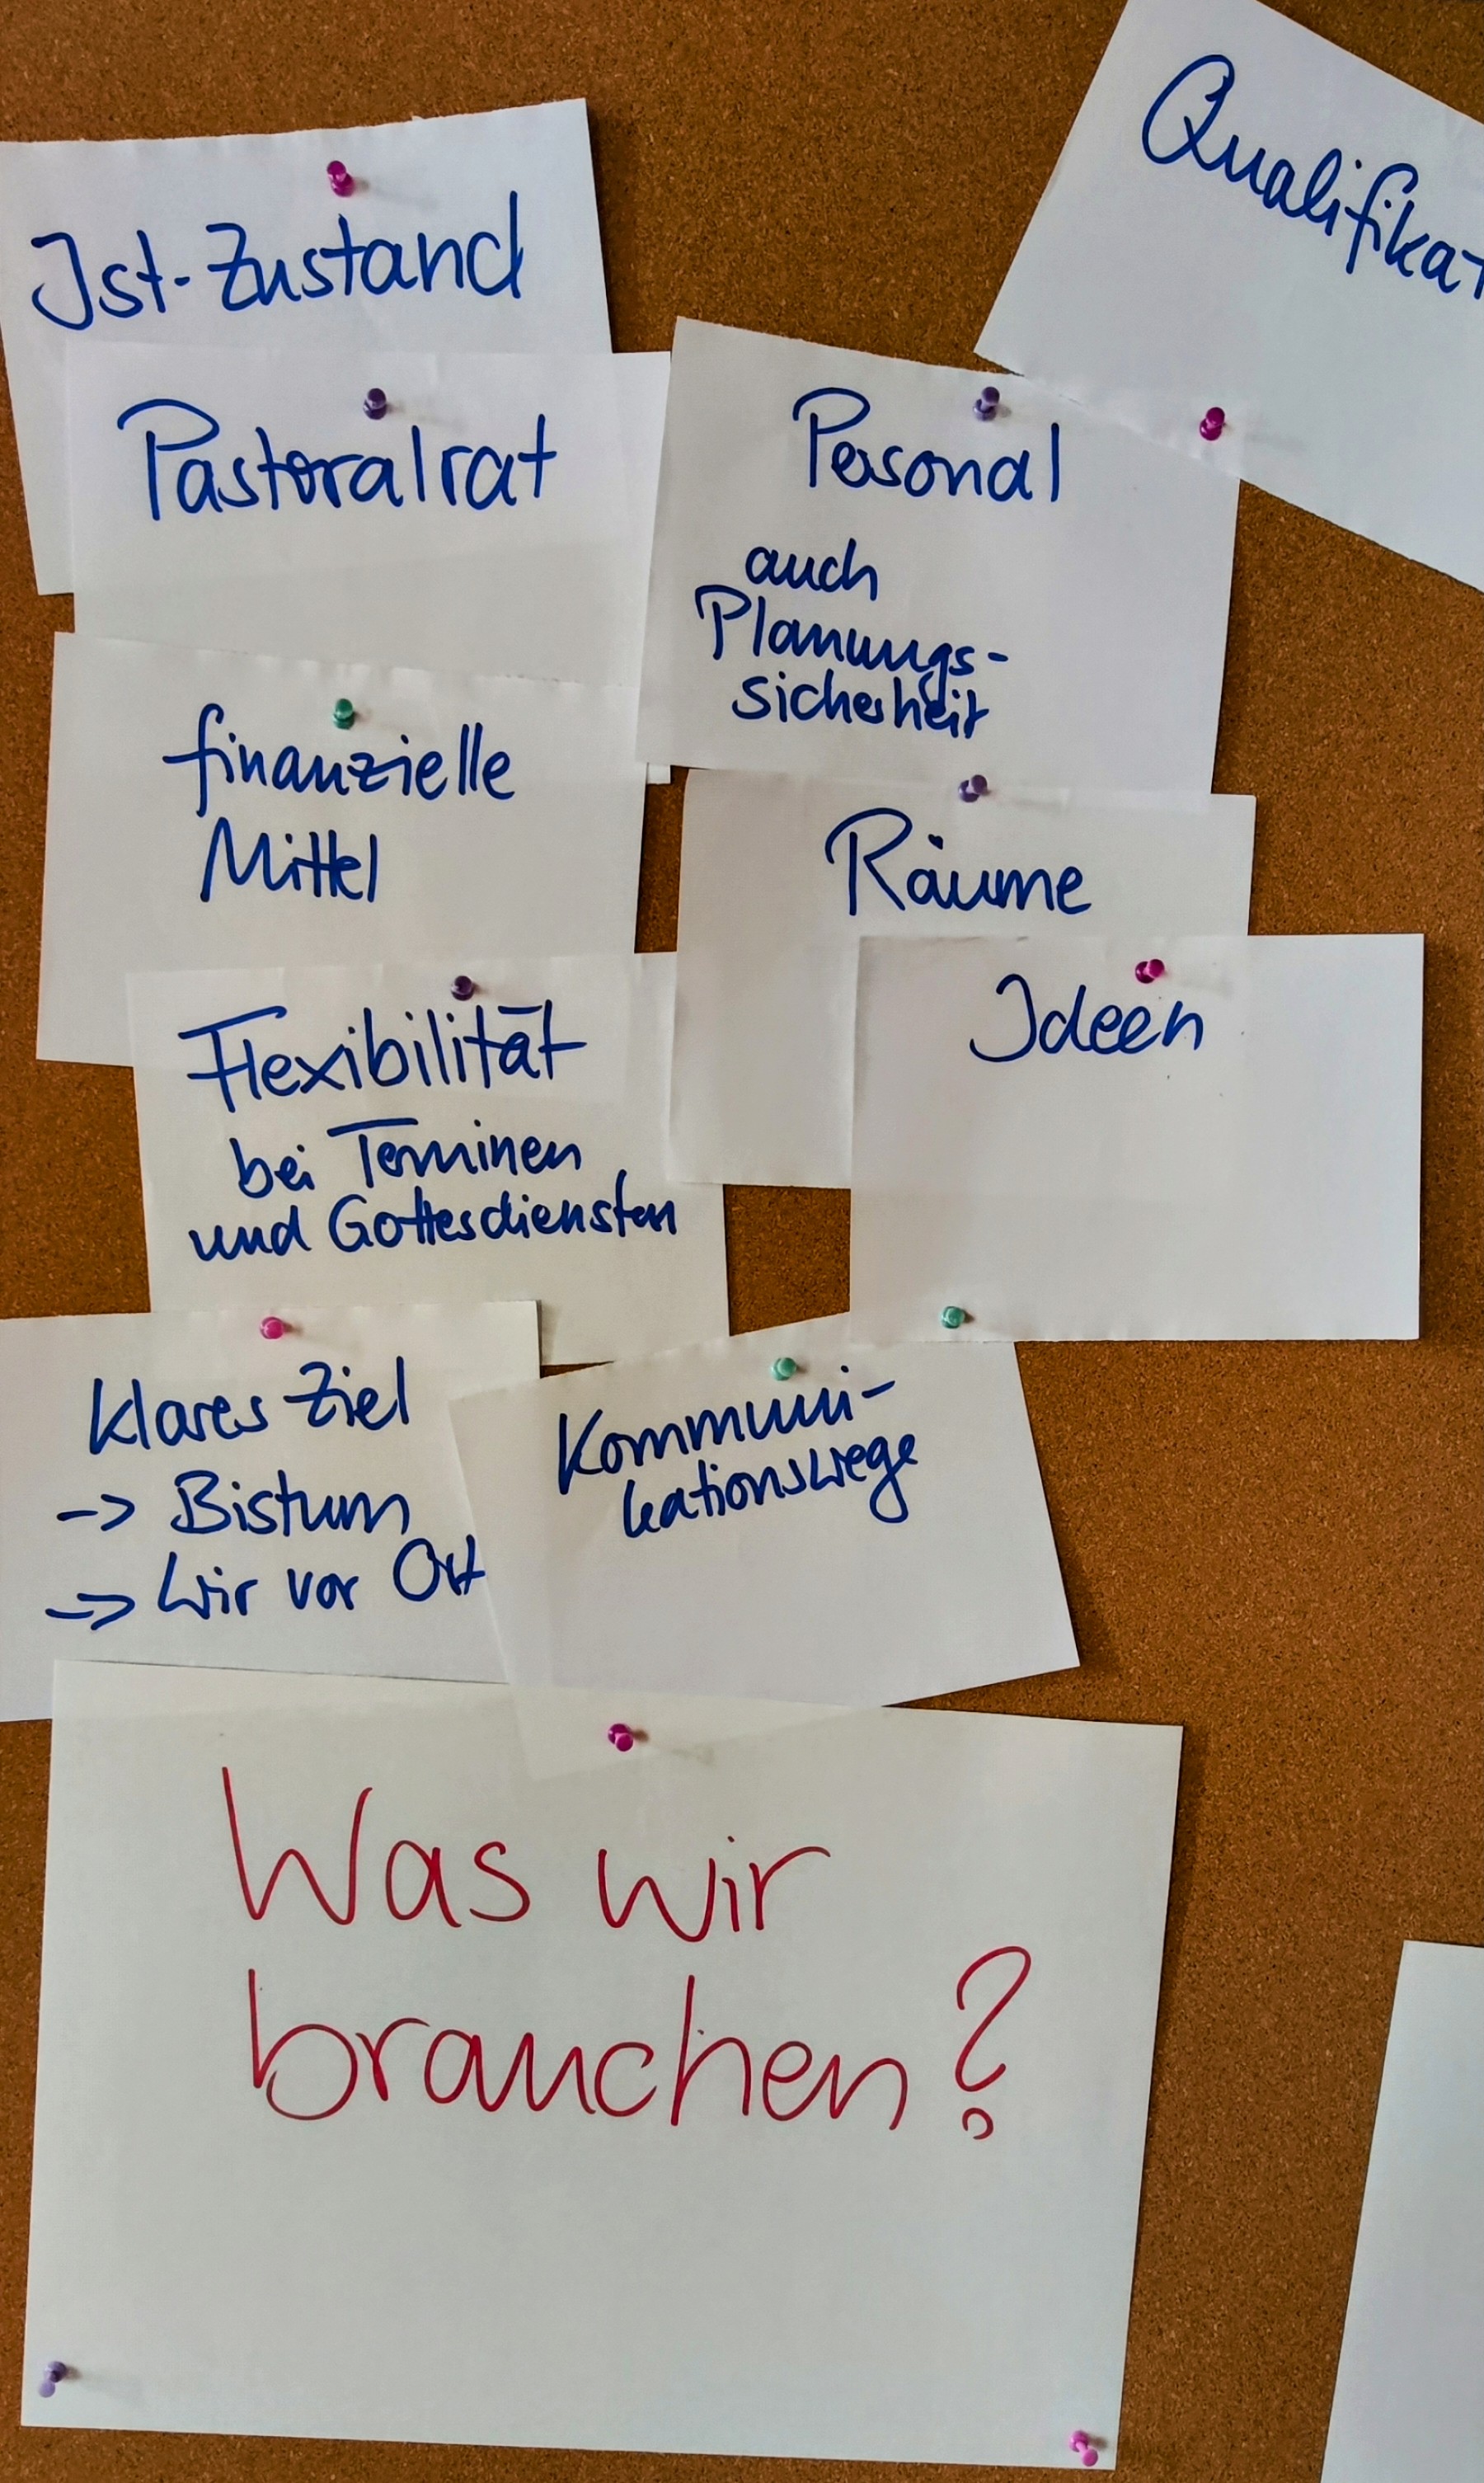 Ist-Zustand
Pastoralrat
finanzielle
Mittel
Flexibilität
bei Terminen
und Gottesdiensten
klares Ziel
-> Bistum
-> Wir vor Ort
Qualifikat
Personal
auch
Planungs-
sicherheit
Räume
Ideen
Kommuni-
kationswege
Was wir
brauchen?